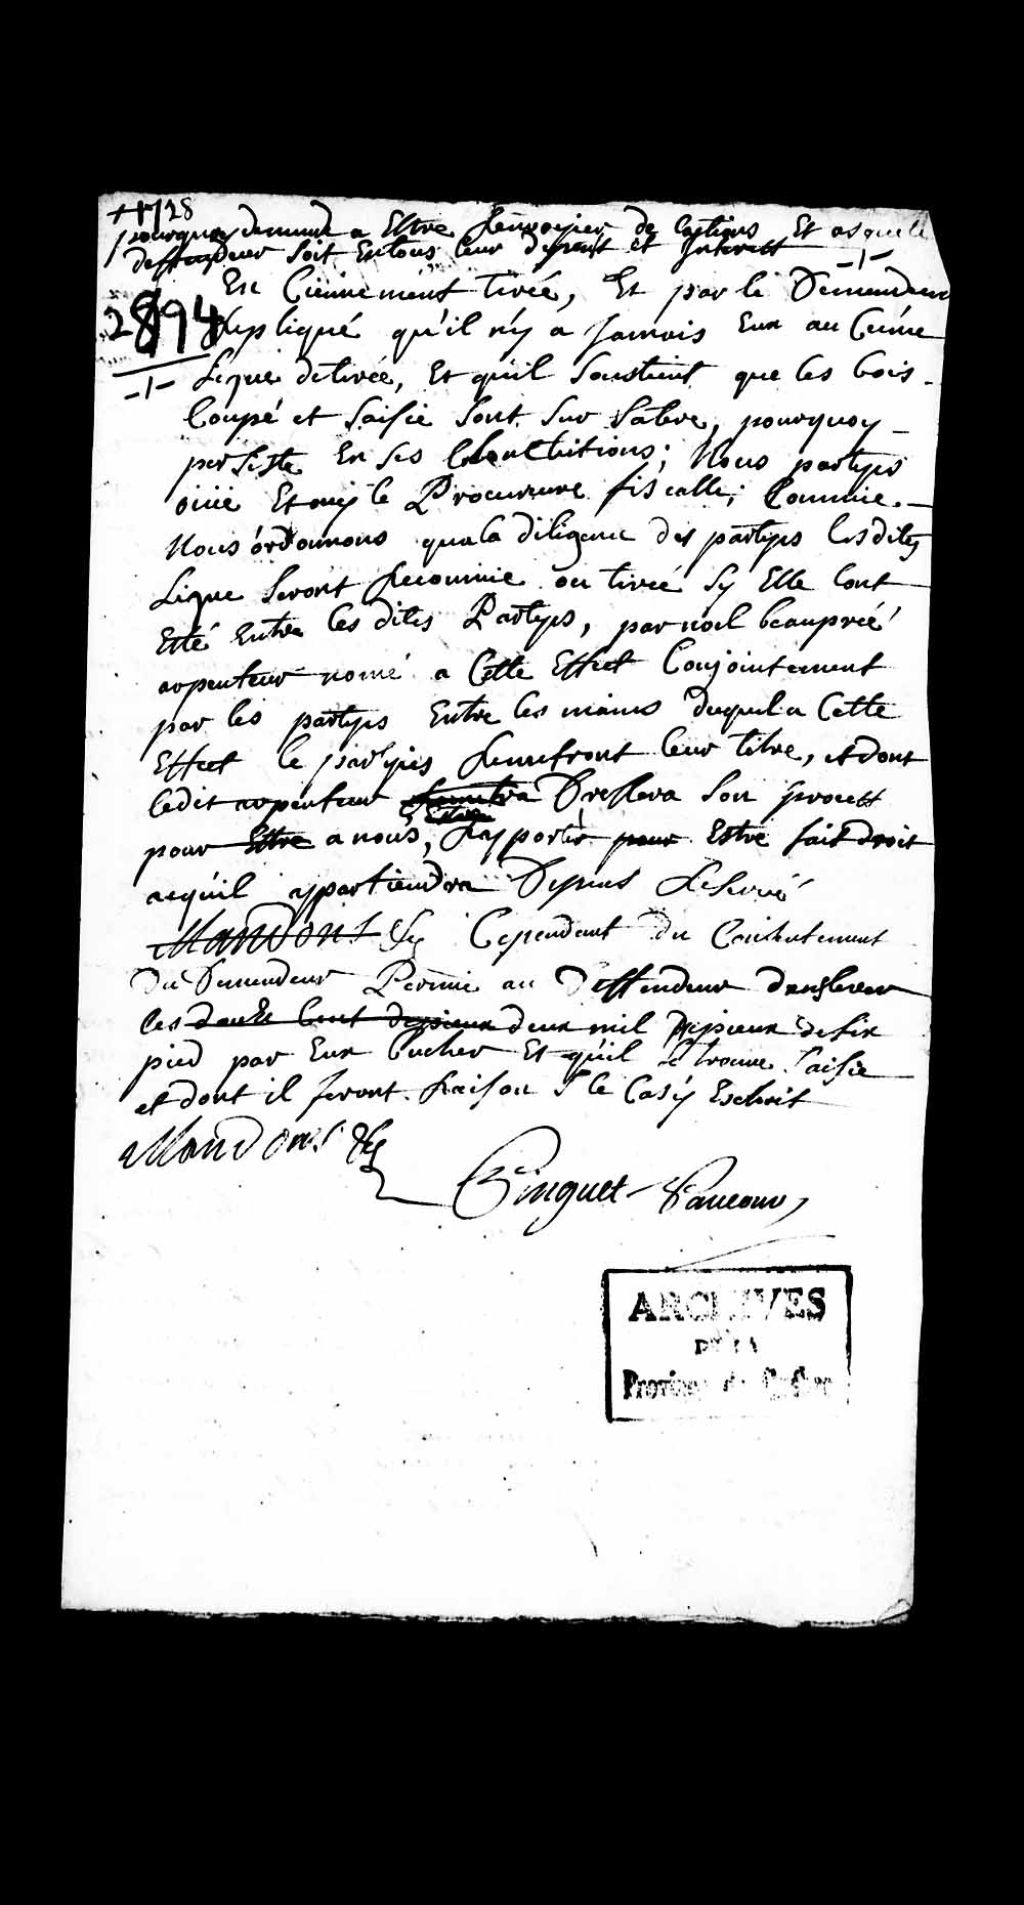 1728
pourquoy demande a Estre Renvoyier de laxtions Et as que le
deffendeur soit Entous leur depent et Interest
-1-
2894
En Ciennement tirée, Et par le Demandeur
Repliqué qu'il n'y a Jamais Eux au Cune
-1-
Ligne de tirée, Et qu'il Soustient que les bois
Coupé et Saisie Sont Sur Sa tere, pourquoy
persiste En ses Conclutions; Nous partyes
ouie Et ouy le Procureure fiscalle; Comme
Nous ordonnons qua la diligence des partyes lesdites
Ligne Seront Reconnue ou tirée Sy Elle Sont
Esté Entre les dites Partyes, par noel beaupréé
arpenteur nomé a Cette Effect Conjointement
par les partyes Entre les mains duquel a Cette
Effect le partyes Remetront leur titre, et dont
ledit arpenteur Dressera Son procest
pour Estre a nous, Estre Rapportér pour Estre fait droit
acquil appartiendra Depens Reservé
Mandons &c Cependant du Consentement
Du Demandeur Permie au Deffendeur denslever
les deux mil pieux de six
pied par Eux bucher Et qu'il Se trouve Saisie
et dont il feront Raison S le Cas y Escheit
Mandons &c
Hinguet faucour
ARCHIVES
DE LA
Province de Québec